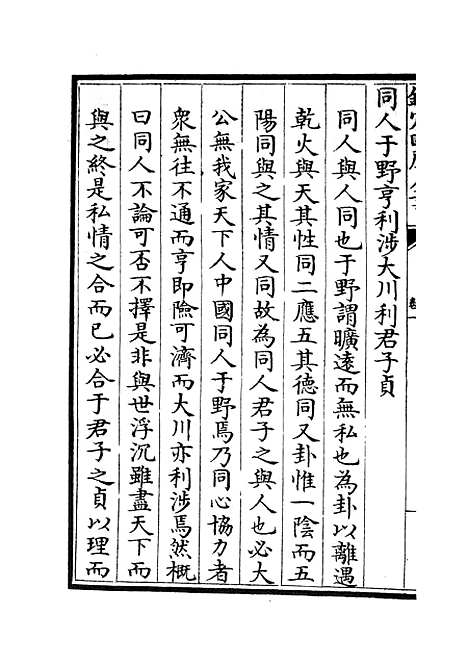 同人于野亨利涉大川利君子貞
同人與人同也于野謂曠遠而無私也為卦以離遇
乾火與天其性同二應五其德同又卦惟一陰而五
陽同與之其情又同故為同人君子之與人也必大
公無我家天下人中國同人于野焉乃同心協力者
衆無往不通而亨即險可濟而大川亦利涉焉然概
曰同人不論可否不擇是非與世浮沉雖盡天下而
與之終是私情之合而已必合于君子之貞以理而